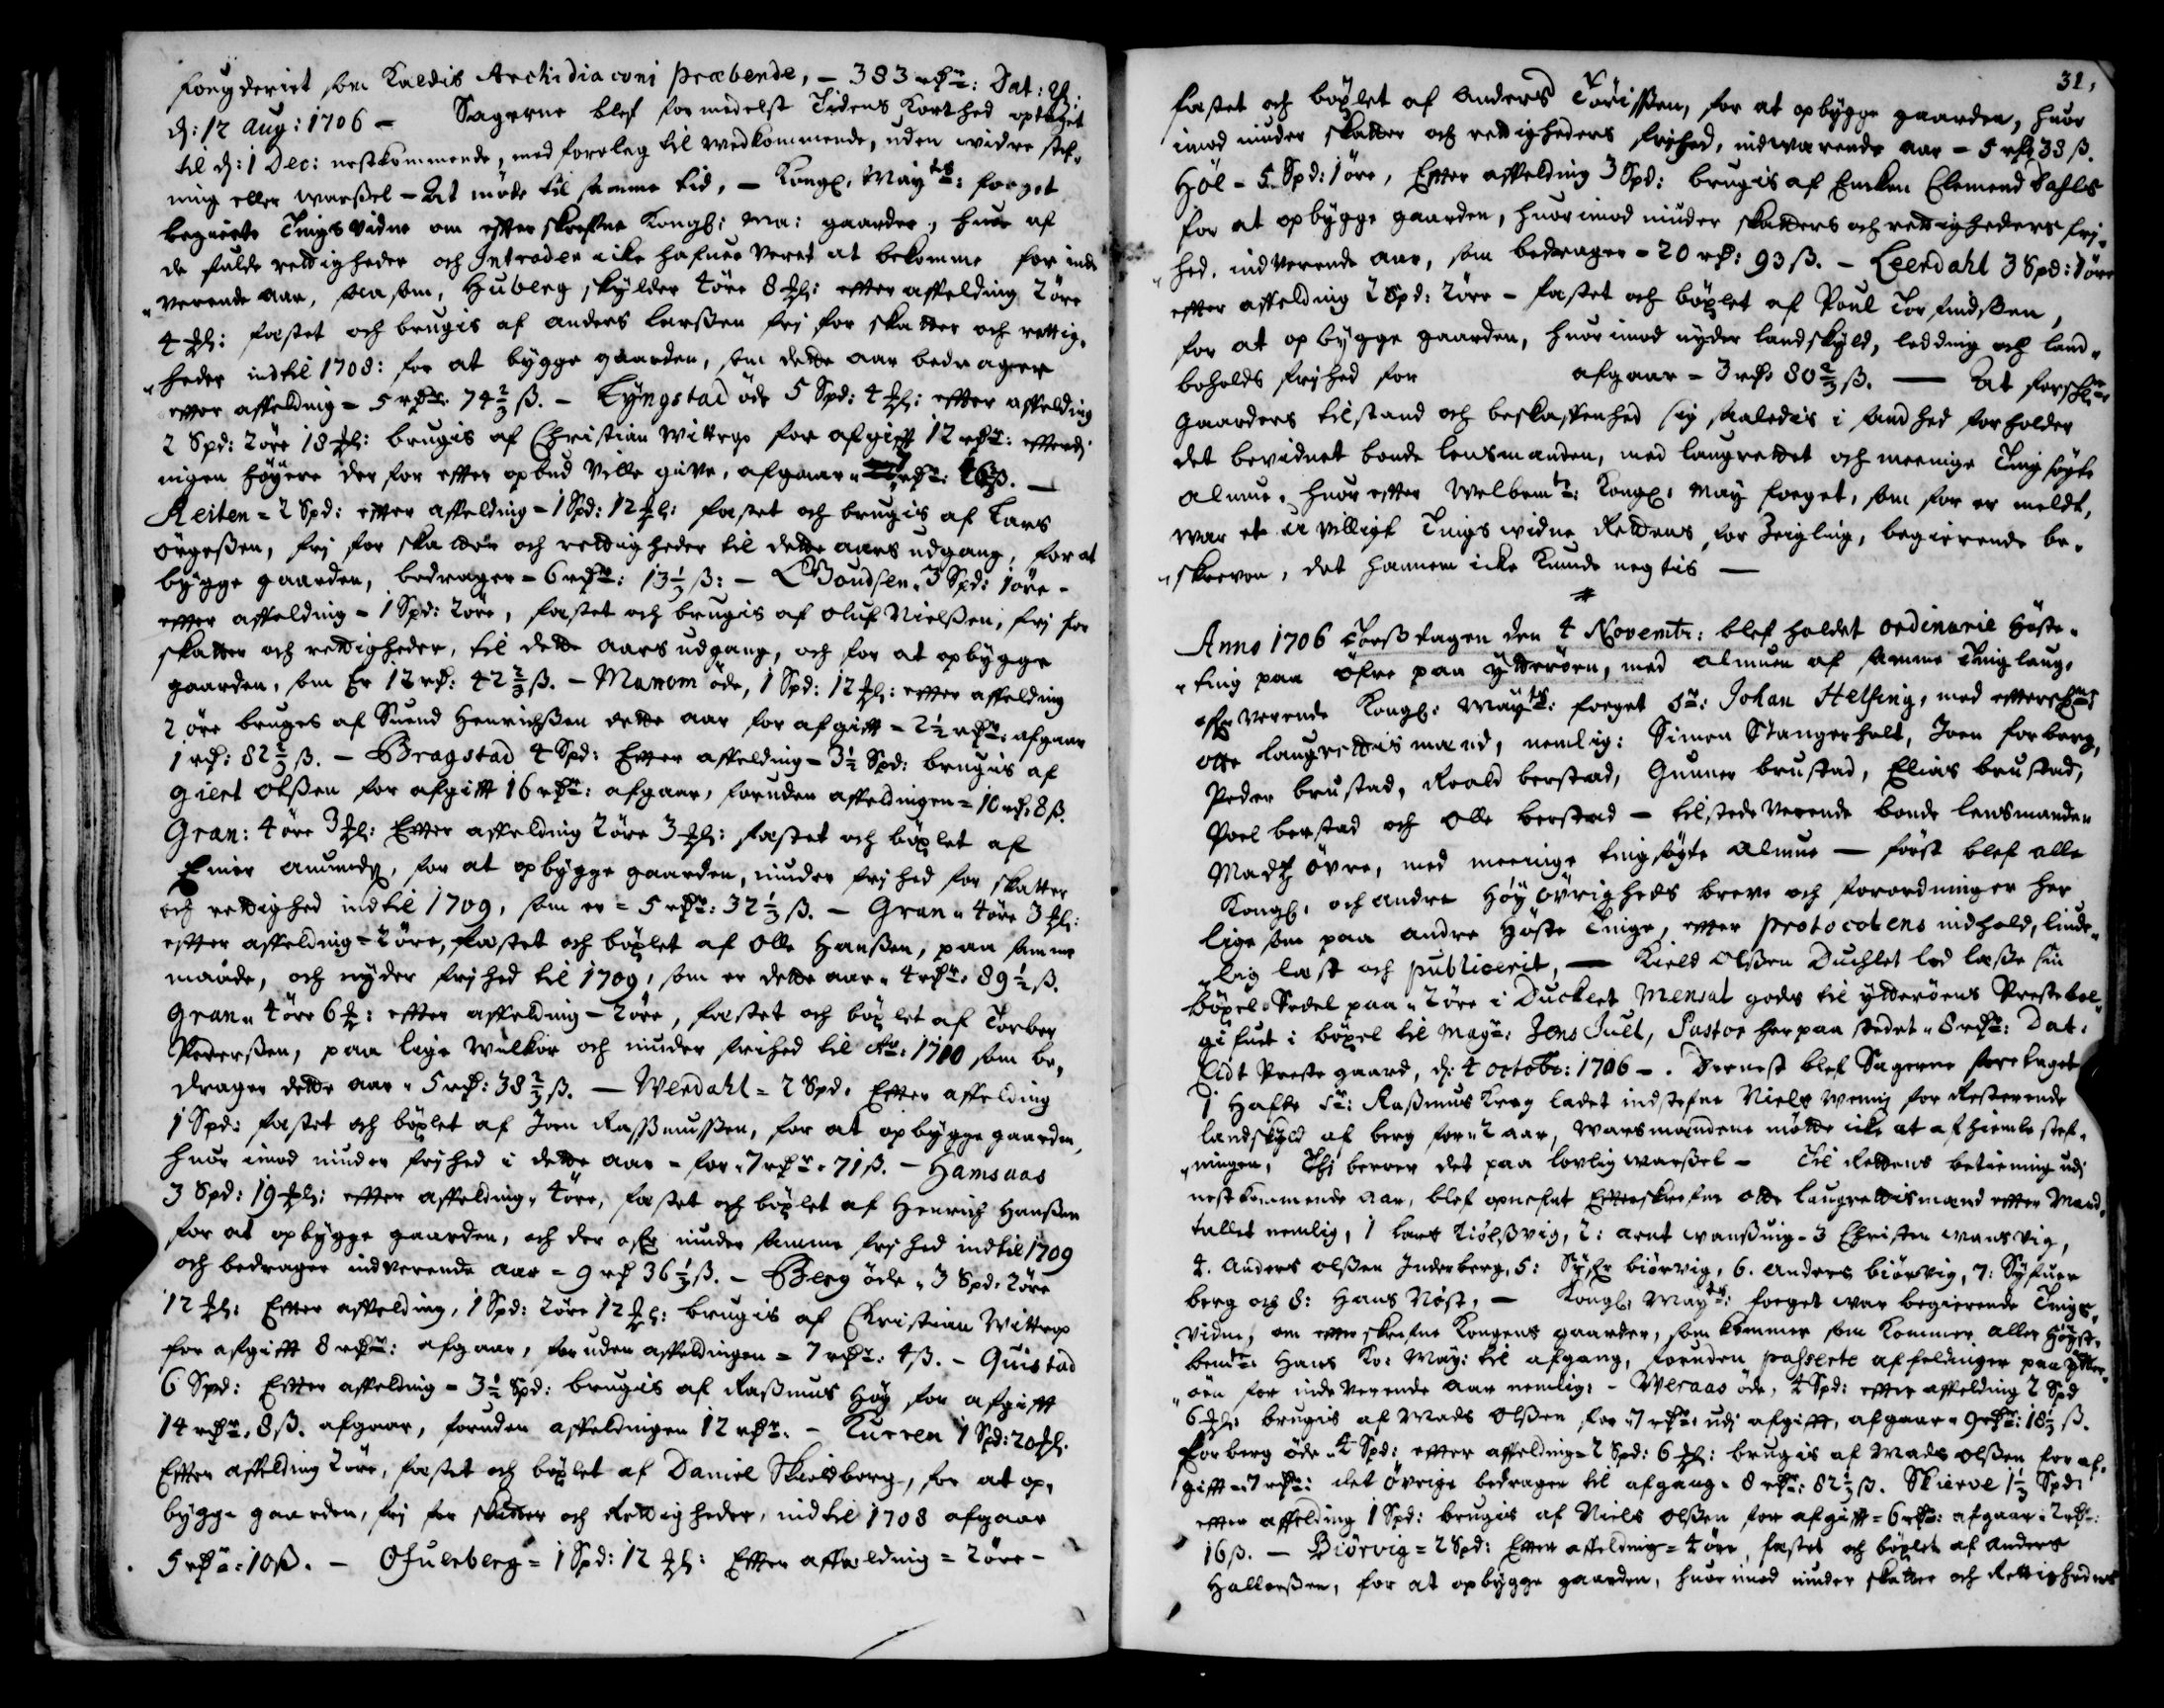 fougderiet som Kaldis Archidiaconi præbende, - 383 rdr: Dat: Th:
d: 12 Aug: 1706 - Sagerne blef formedelst Tidens Korthed optaget
til d: 1 Dec: nestkommende, med foreleg til wedkommende, uden widre stef¬
ning eller warßel - At møde til samme tid, - Kongl: Mayts: foeget
begierte Tingsvidne om efterskrefne Kongl: Ma: gaarder, huor af
de fulde rettigheder och Intrader icke hafuer veret at bekomme for inde
"verende aar, saasom, Huberg skylder 4 øre 8 ml: efter affelding 2 øre
4 ml: fæstet och brugis af anders larßen frj for skatter och rettig¬
"heder indtil 1708: for at bygge gaarden, som dette aar bedrager
efter affelding = 5 rdr: 74 2/3 ß. - Lyngstad øde 5 Spd: 4 ml: efter affelding
2 Spd: 2 øre 18 ml: brugis af Christian Wittrup for afgift 12 rdr: efterdj
ingen høyere der for efter opbud ville give, afgaar rdr: ß. -
Reiten = 2 Spd: efter affelding = 1 Spd: 12 ml: fæstet och brugis af Lars
ørgeßen, frj for skatter och rettigheder til dette aars udgang, for at
bygge gaarden, bedrager = 6 rdr: 13 1/3 ß: - Boudsen, 3 Spd: 1 øre -
efter affelding = 1 Spd: 2 øre, fæstet och brugis af oluf Nielßen, frj for
skatter och rettigheder, til dette aars udgang, och for at opbygge
gaarden, som Er 12 rd: 42 2/3 ß. - Mamom øde, 1 Spd: 12 ml: efter affelding
2 øre bruges af Suend Henrichßen dette aar for afgift = 2 1/2 rdr: afgaar
1 rd: 82 2/3 ß. - Bragstad 4 Spd: Efter affelding = 3 1/2 Spd: brugis af
giert olßen for afgift 16 rdr: afgaar, foruden affeldingen = 10 rd: 8 ß.
Gran: 4 øre 3 ml: Efter affelding 2 øre 3 ml: fæstet och bøxlet af
Einer amundß, for at opbygge gaarden, niuder frjhed for skatter
och rettighed indtil 1709, som er = 5 rdr: 32 1/3 ß. - Gran = 4 øre 3 ml:
efter affelding = 2 øre, fæstet och bøxlet af olle Hanßen, paa samme
maade, och nyder frjhed til 1709, som er dette aar = 4 rdr: 89 1/2 ß.
Gran = 4 øre 6 ml: efter affelding = 2 øre, fæstet och bøxlet af Torber
Pederßen, paa lige wilkor och niuder frihed til Ao: 1710 som be¬
drager dette aar = 5 rd: 38 2/3 ß. - Werdahl = 2 Spd: Efter affelding
1 Spd: fæstet och bøxlet af Joen Raßmußen, for at opbygge gaarden,
huor imod niuder frjhed i dette aar = for = 7 rdr = 71 ß. - Hamsaas
3 Spd: 19 ml: efter affelding = 4 øre, fæstet och bøxlet af Henrich Hanßen
for at opbygge gaarden, och der ofr niuder samme frjhed indtil 1709
och bedrager indverende aar = 9 rd 36 1/3 ß. - Berg øde = 3 Spd: 2 øre
12 ml: Efter affelding, 1 Spd: 2 øre 12 ml: brugis af Christian Wittrup
for afgift 8 rdr: afgaar, foruden affeldingen = 7 rdr: 4 ß. - Quistad
6 Spd: Efter affelding = 3 1/2 Spd: brugis af Raßmus Høy for afgift
14 rdr: 8 ß. afgaar, foruden affeldingen 12 rdr. - Kurren 1 Spd: 20 ml.
Efter affelding 2 øre, fæstet och bøxlet af Daniel Skieldberg, for at op¬
bygge gaarden, frj for skatter och Rettigheder, indtil 1708 afgaar
5 rdr: 10 ß. - Ofuleberg = 1 Spd: 12 ml: Efter affælding = 2 øre -
31,
fæstet och bøxlet af Anders Tørißen, for at opbygge gaarden, huor
imod niuder skatter och rettigheders frjhed, indwarende aar = 5 rd 38 ß.
Høl = 5 Spd: 1 øre, Efter affelding 3 Spd: brugis af Encken Clemend Dahls
for at opbygge gaarden, huorimod niuder skatters och rettigheders frj¬
"hed, indverende aar, som bedrager = 20 rd: 93 ß. - Leerdahl 3 Spd: 1 øre
efter affelding 2 Spd: 2 øre - fæstet och bøxlet af Poul Torfindßen,
for at opbygge gaarden, huorimod nyder landskyld, leding och land¬
boholds frjhed for afgaar = 3 rd: 80 2/3 ß. - At forschr:
gaarders tilstand och beskaffenhed sig saaledis i sandhed forholder
det bevidnet bonde lensmanden, med laugrettet och meenige Tingsøgte
almue, huorefter Welbemte: Kongl: May foeget, som for er meldt,
war et u villigt Tingswidne Rettens forzeigling, begierende be¬
"skreven, det hannem icke Kunde negtis -
Anno 1706 Torßdagen den 4 Novembr: blef holdet ordinarie Høste¬
"ting paa Øfre paa Ytterøen, med almuen af samme Tinglaug,
ofververende Kongl: Mayts: foeget Sr: Johan Helsing, med efterschne:
otte laugrettismænd, nemlig: Simen Stangerholt, Joen forberg,
Peder brustad, Roald berstad, Gunner brustad, Elias brustad,
Poel berstad och olle berstad - tilstedeverende bonde lensmanden
Madtz øvre, med meeninge tingsøgte almue - først blef alle
Kongl: och andre Høy øvrigheds breve och forordninger her
lige som paa andre Høste Tinge, efter protocolens indhold, liude¬
"lig læst och publicerit, - Kield olßen Duchlet lod læße sin
Bøxel-Sedel paa 2 øre i Duckert Mensal gods til ytterøens Prestebol
gifuet i bøxel til magr: Jens Juel, Pastor her paa stedet = 8 rdr: Dat:
Eidt Prestegaard, d: 4 octobr: 1706 -. Dernest blef Sagerne foretaget
1 Hafde Sr: Raßmus Krog ladet indstefne Niels Wennis for Resterende
landskyld af berg for = 2 aar, Warsmændene møtte icke at afhiemle stef¬
"ningen, Thj beroer det paa lovlig warßel - Til Rettens betiening udj
nestkommende aar, blef opnefnt Efterskrefne otte laugrettismænd efter Mand¬
tallet nemlig, 1 Lars Tiølßvig, 2: arnt wanßuig - 3 Christen wansvig,
4. Anders olßen Inderberg, 5: Syfer biørvig, 6. Anders biørvig, 7: Syfuer
berg och 8: Hans Nøst, - Kongl: Mayts: foeget war begierende Tings¬
vidne, om efterskrefne Kongens gaarder, som kommer som Kommer aller Høyst¬
bemte: Hans Ko: May: til afgang, foruden passerte affeldinger paa ytter¬
"øen for indeverende aar nemlig: - Weraas øde, 4 Spd: efter affelding 2 Spd
6 ml: brugis af Mads olßen for = 7 rdr: udj afgift, afgaar = 9 rdr: 18 1/3 ß.
Forberg øde = 4 Spd: efter affelding = 2 Spd: 6 ml: brugis af Mads olßen for af¬
gift = 7 rdr: det øvrige bedrager til afgang = 8 rdr: 82 2/3 ß. Skierve 1 1/3 Spd:
efter affelding 1 Spd: brugis af Niels olßen for afgift = 6 rdr: afgaar = 2 rdr:
16 ß. - Biørvig = 2 Spd: Efter affelding = 4 øre, fæstet och bøxlet af Anders
Halleußen, for at opbygge gaarden, huorimod niuder skatter och Rettigheders